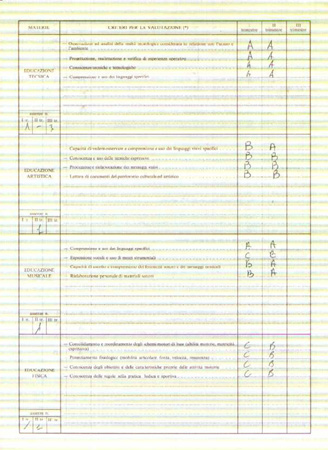 MATERIA CRITERI PER LA VALUTAZIONE (*) I II III
Osservazione ed analisi della realtà tecnologica considerata in relazione con l'uomo e l'ambiente A A
— Progettazione, realizzazione e verifica di esperienze operative A A
EDUCAZIONE TECNICA
— Conoscenze tecniche e tecnologiche A A
— Comprensione e uso dei linguaggi specifici A A
I q. II q. III q.
— Capacità di vedere-osservare e comprensione e uso dei linguaggi visivi specifici B A
EDUCAZIONE ARTISTICA
— Conoscenza e uso delle tecniche espressive B B
— Produzione e rielaborazione dei messaggi visivi B B
— Lettura di documenti del patrimonio culturale ed artistico B B
I q. II q. III q.
— Comprensione e uso dei linguaggi specifici A
EDUCAZIONE MUSICALE
— Espressione vocale e uso di mezzi strumentali C
— Capacità di ascolto e comprensione dei fenomeni sonori e dei messaggi musicali B A
— Rielaborazione personale di materiali sonori B A
I q. II q. III q.
— Consolidamento e coordinamento degli schemi motori di base C B
— Potenziamento fisiologico C B
EDUCAZIONE FISICA
— Conoscenza degli obiettivi e delle caratteristiche proprie delle attività motorie C B
— Conoscenza delle regole nella pratica ludica e sportiva C B